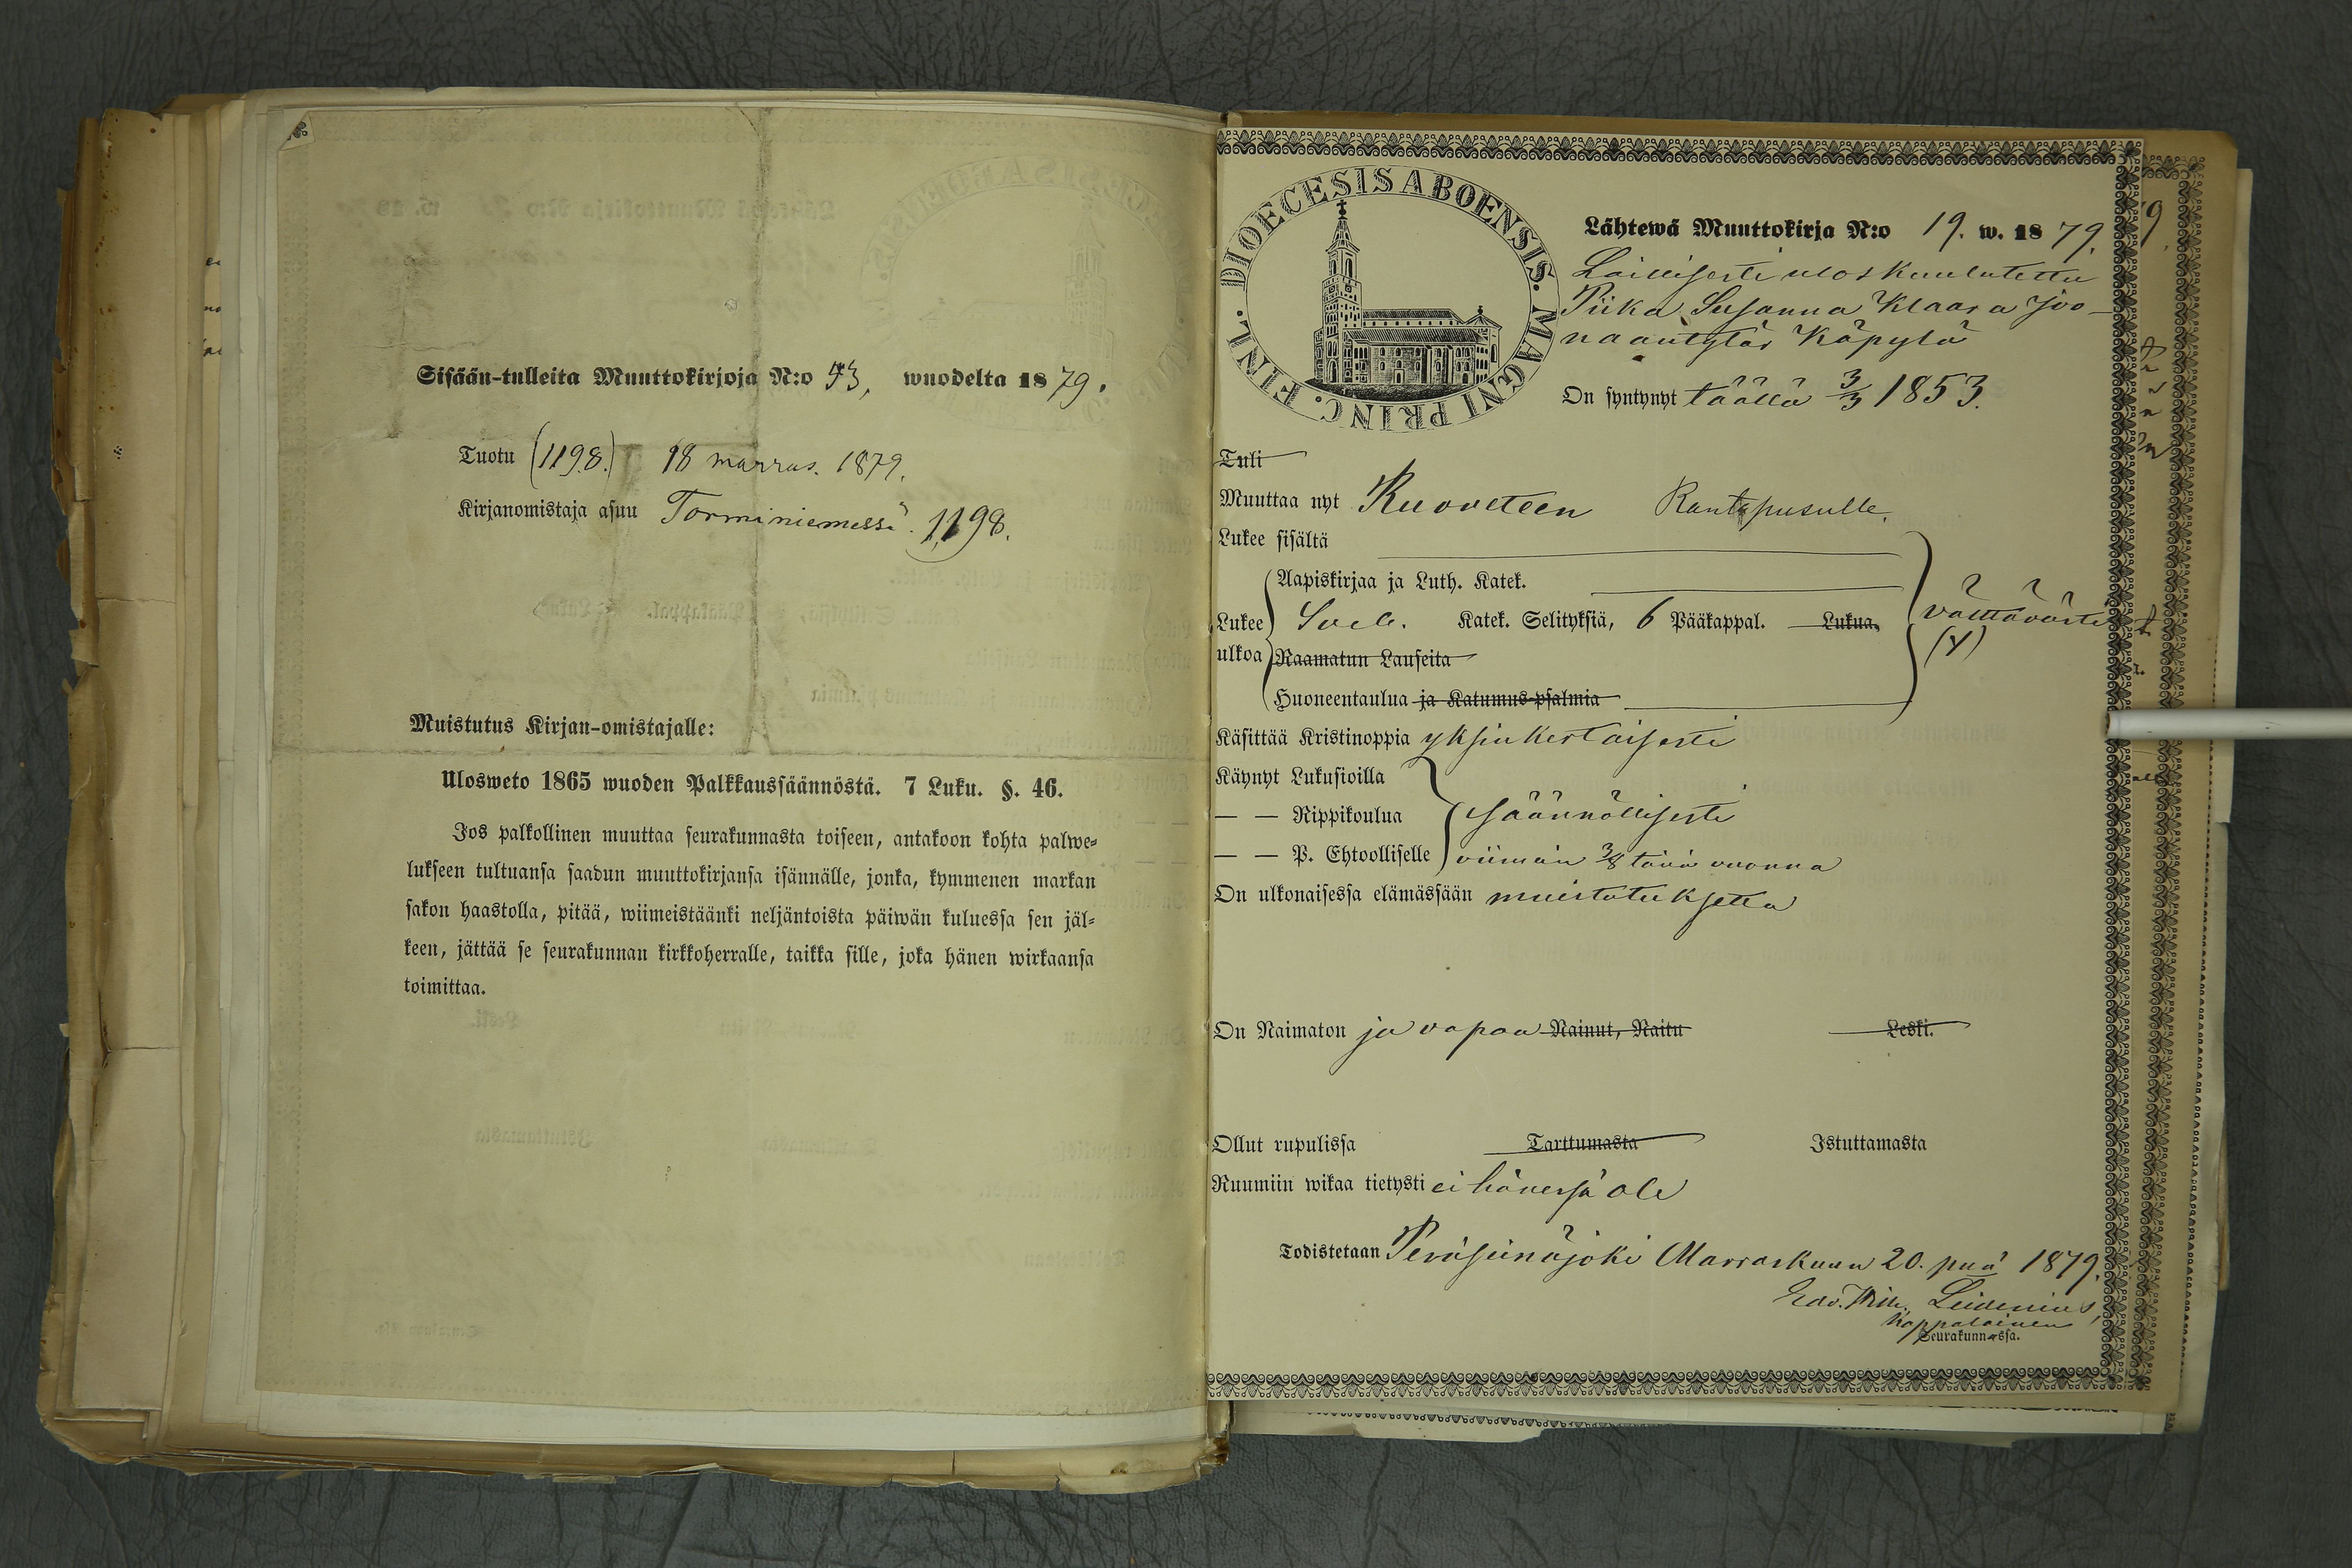 Sisään-tulleita Muuttokirjoja N:o 73, wuodelta 1879.
Tuotu (1198.) 18 marras. 1879.
Kirjanomistaja asuu Torminiemessä. 1198.
Muistutus Kirjan-omistajalle:
Ulosweto 1865 wuoden Palkkaussäännöstä. 7 Luku. §. 46.
Jos palkollinen muuttaa seurakunnasta toiseen, antakoon kohta palwe-
lukseen tultuansa saadun muuttokirjansa isännälle, jonka, kymmenen markan
sakon haastolla, pitää, wiimeistäänki neljäntoista päiwän kuluessa sen jäl-
keen, jättää se seurakunnan kirkkoherralle, taikka sille, joka hänen wirkaansa
toimittaa.
DIOECESIS ABOENSIS. MAGNI PRINC. FINL.
Lähtewä Muuttokirja N:o 19. w. 1879.
Laillisesti uloskuulutettu
Piika Susanna Klaara Joo-
naantytär Käpylä
On syntynyt täällä 3/3 1853.
Tuli
Muuttaa nyt Ruoveteen
Lukee sisältä
Aapiskirjaa ja Luth. Katek.
Lukee Sveb. Katek. Selityksiä, 6 Pääkappal. Lukua.
ulkoa Raamatun Lauseita
välttävästi
Huoneentaulua ja Katumus-psalmia
Käsittää Kristinoppia yksinkertaisesti
Käynyt Lukusioilla
— — Rippikoulua säännöllisesti
— — P. Ehtoolliselle viimein 3/8 tänä vuonna
On ulkonaisessa elämässään muistutuksetta
On Naimaton ja vapaa Nainut, Naitu Leski.
Ollut rupulissa Tarttumasta Istuttamasta
Ruumiin wikaa tietysti ei hänessä ole
Todistetaan Peräseinäjoki Marraskuun 20. pnä 1879.
Edv. Wilh. Leidenius,
kappalainen
Seurakunnassa.